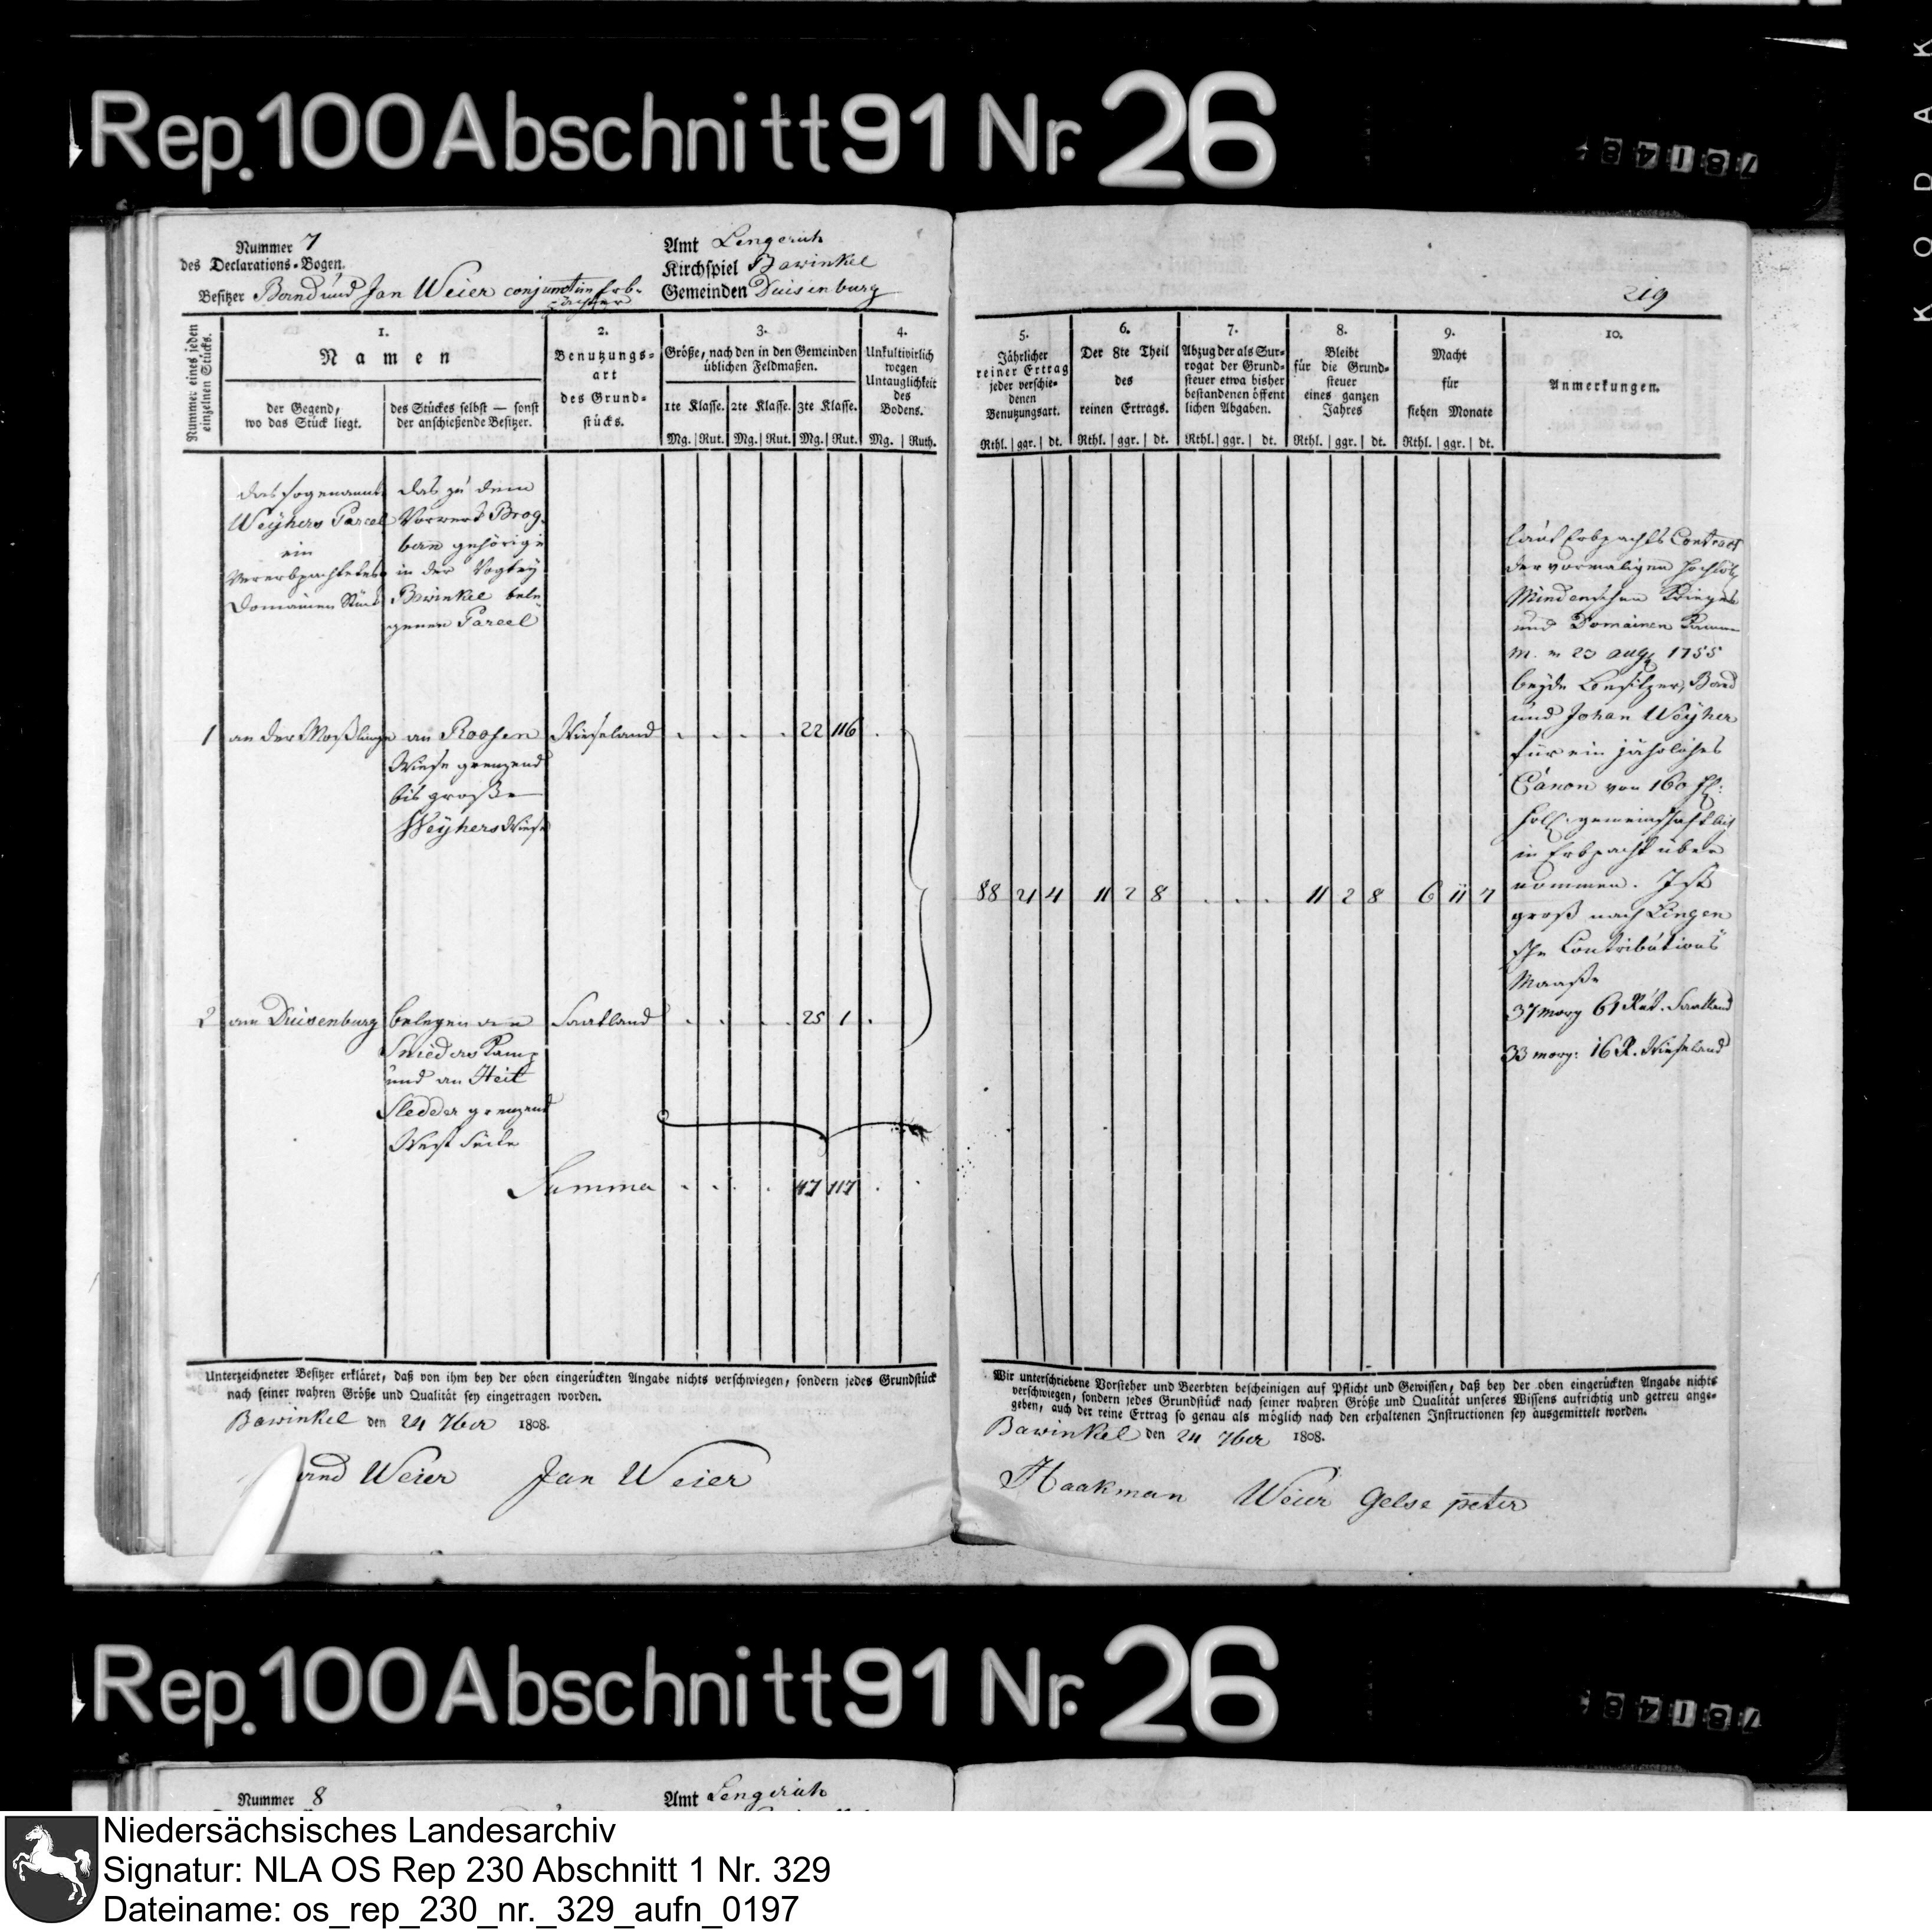 Rep. 100 Abschnitt 91 Nr. 26
KODAK
Nummer 7
des Declarations-Bogen.
Besitzer Bernd und Jan Weier conjunctim Erb-
pächter
Amt Lengerich
Kirchspiel Bawinkel
Gemeinden Duisenburg
219
Nummer eines jeden einzelnen Stücks.
1.
Namen
der Gegend,
wo das Stück liegt.
des Stückes selbst — sonst
der anschießende Besitzer.
2.
Benutzungs-
art
des Grund-
stücks.
3.
Größe, nach den in den Gemeinden
üblichen Feldmaßen.
1te Klasse. 2te Klasse. 3te Klasse.
Mg. Rut. Mg. Rut. Mg. Rut.
4.
Unkultivirlich
wegen
Untauglichkeit
des
Bodens.
Mg. Ruth.
5.
Jährlicher
reiner Ertrag
jeder verschie-
denen
Benutzungsart.
Rthl. ggr. dt.
6.
Der 8te Theil
des
reinen Ertrags.
Rthl. ggr. dt.
7.
Abzug der als Sur-
rogat der Grund-
steuer etwa bisher
bestandenen öffent
lichen Abgaben.
Rthl. ggr. dt.
8.
Bleibt
für die Grund-
steuer
eines ganzen
Jahres
Rthl. ggr. dt.
9.
Macht
für
sieben Monate
Rthl. ggr. dt.
10.
Anmerkungen.
das sogenannte
Weÿhers Parcel
ein
Vererbpachtetes
Domainen Stück
das zu dem
Vorwerk Brog
bern gehörige
in der Vogtey
Bawinkel bele
genen Parcel
1 an der Maßlinge an Roosen Wieseland 22 116
Wiese grenzend
bis große
Weÿhers Wiese
88 21 4 11 2 8 11 2 8 6 11 7
2 am Duisenburg belegen an Saatland 25 1
Snieders Kamp
und an Heit
Sledder grenzend
West Seite
Summa 47 117
laut Erbpachts Contract
der vormaligen Hochlöb
Mindenschen Krieges
und Domainen Kamm
23 aug 1755
beyde Besitzer, Bernd
und Johan Weÿher
für ein jährliches
Canon von 160 fl:
holl: gemeinschaftlich
in Erbpacht über
nommen. Ist
groß nach Lingen
sche Contributions
Maaße
37 morg 61 Rut. Saatland
33 morg: 16 R. Wieseland
Unterzeichneter Besitzer erkläret, daß von ihm bey der oben eingerückten Angabe nichts verschwiegen, sondern jedes Grundstück
nach seiner wahren Größe und Qualität sey eingetragen worden.
Bawinkel den 24 7ber 1808.
Weier Jan Weier
Wir unterschriebene Vorsteher und Beerbten bescheinigen auf Pflicht und Gewissen, daß bey der oben eingerückten Angabe nichts
verschwiegen, sondern jedes Grundstück nach seiner wahren Größe und Qualität unseres Wissens aufrichtig und getreu ange-
geben, auch der reine Ertrag so genau als möglich nach den erhaltenen Instructionen sey ausgemittelt worden.
Bawinkel den 24 7ber 1808.
Haakman Weier Gelse peter
Rep. 100 Abschnitt 91 Nr. 26
Nummer 8
Amt Lengerich
Niedersächsisches Landesarchiv
Signatur: NLA OS Rep 230 Abschnitt 1 Nr. 329
Dateiname: os_rep_230_nr._329_aufn_0197